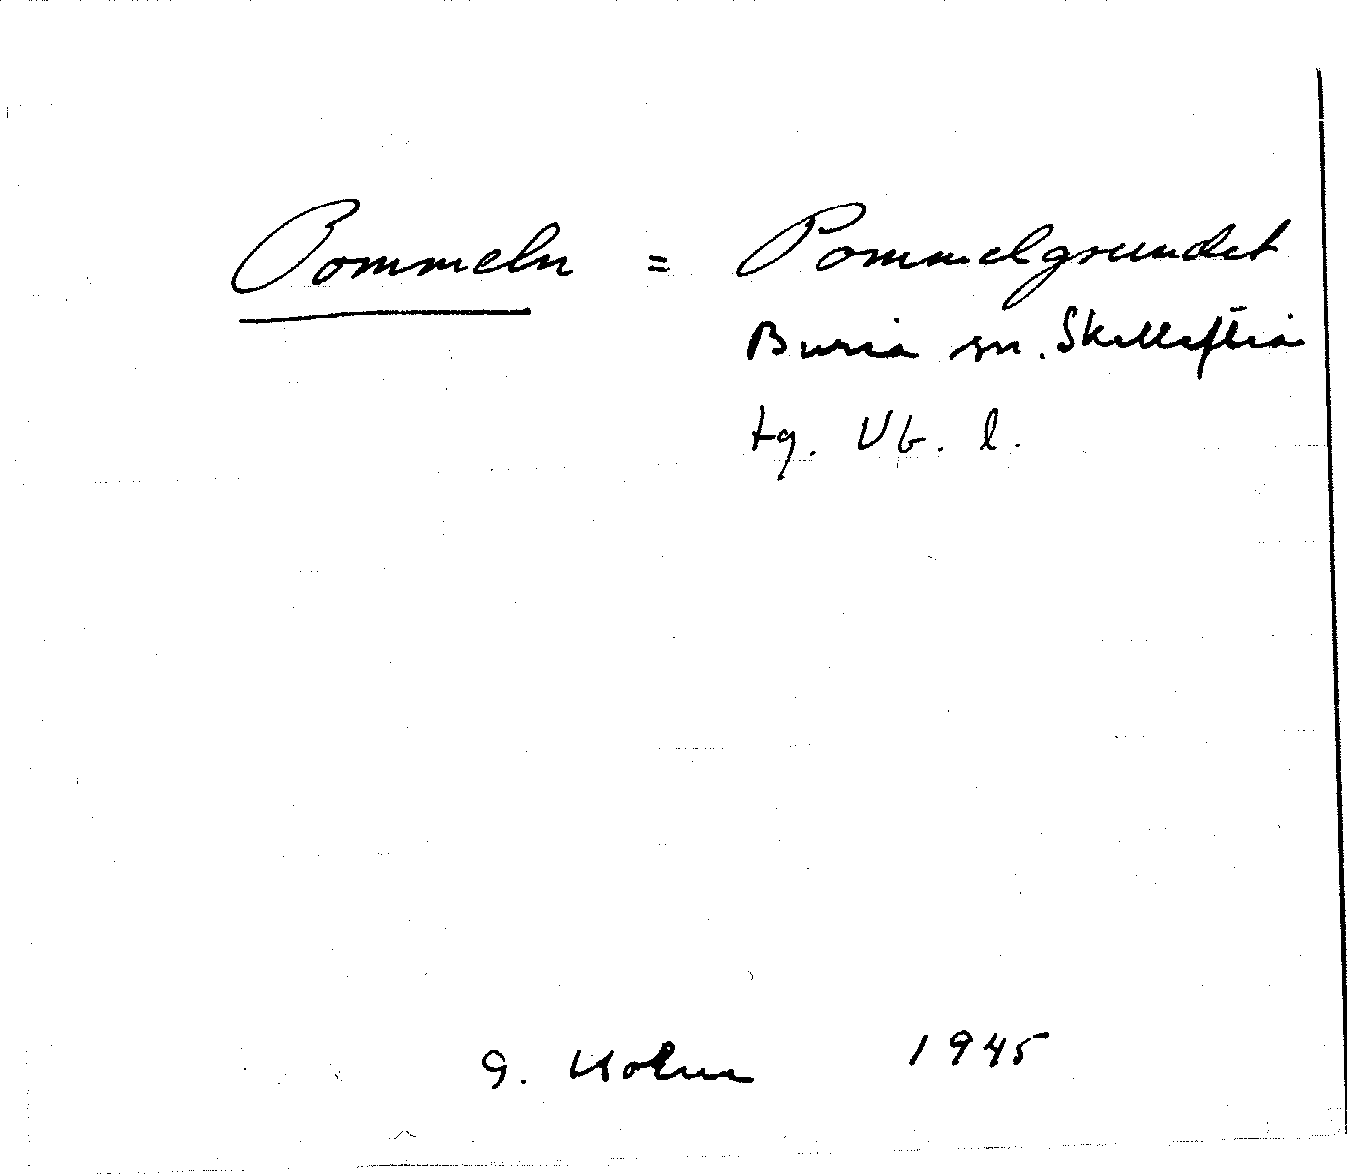 Pommeln = Pommelgrundet
Bureå sn. Skellefteå
tg. Vb. l.
G. Holm 1945